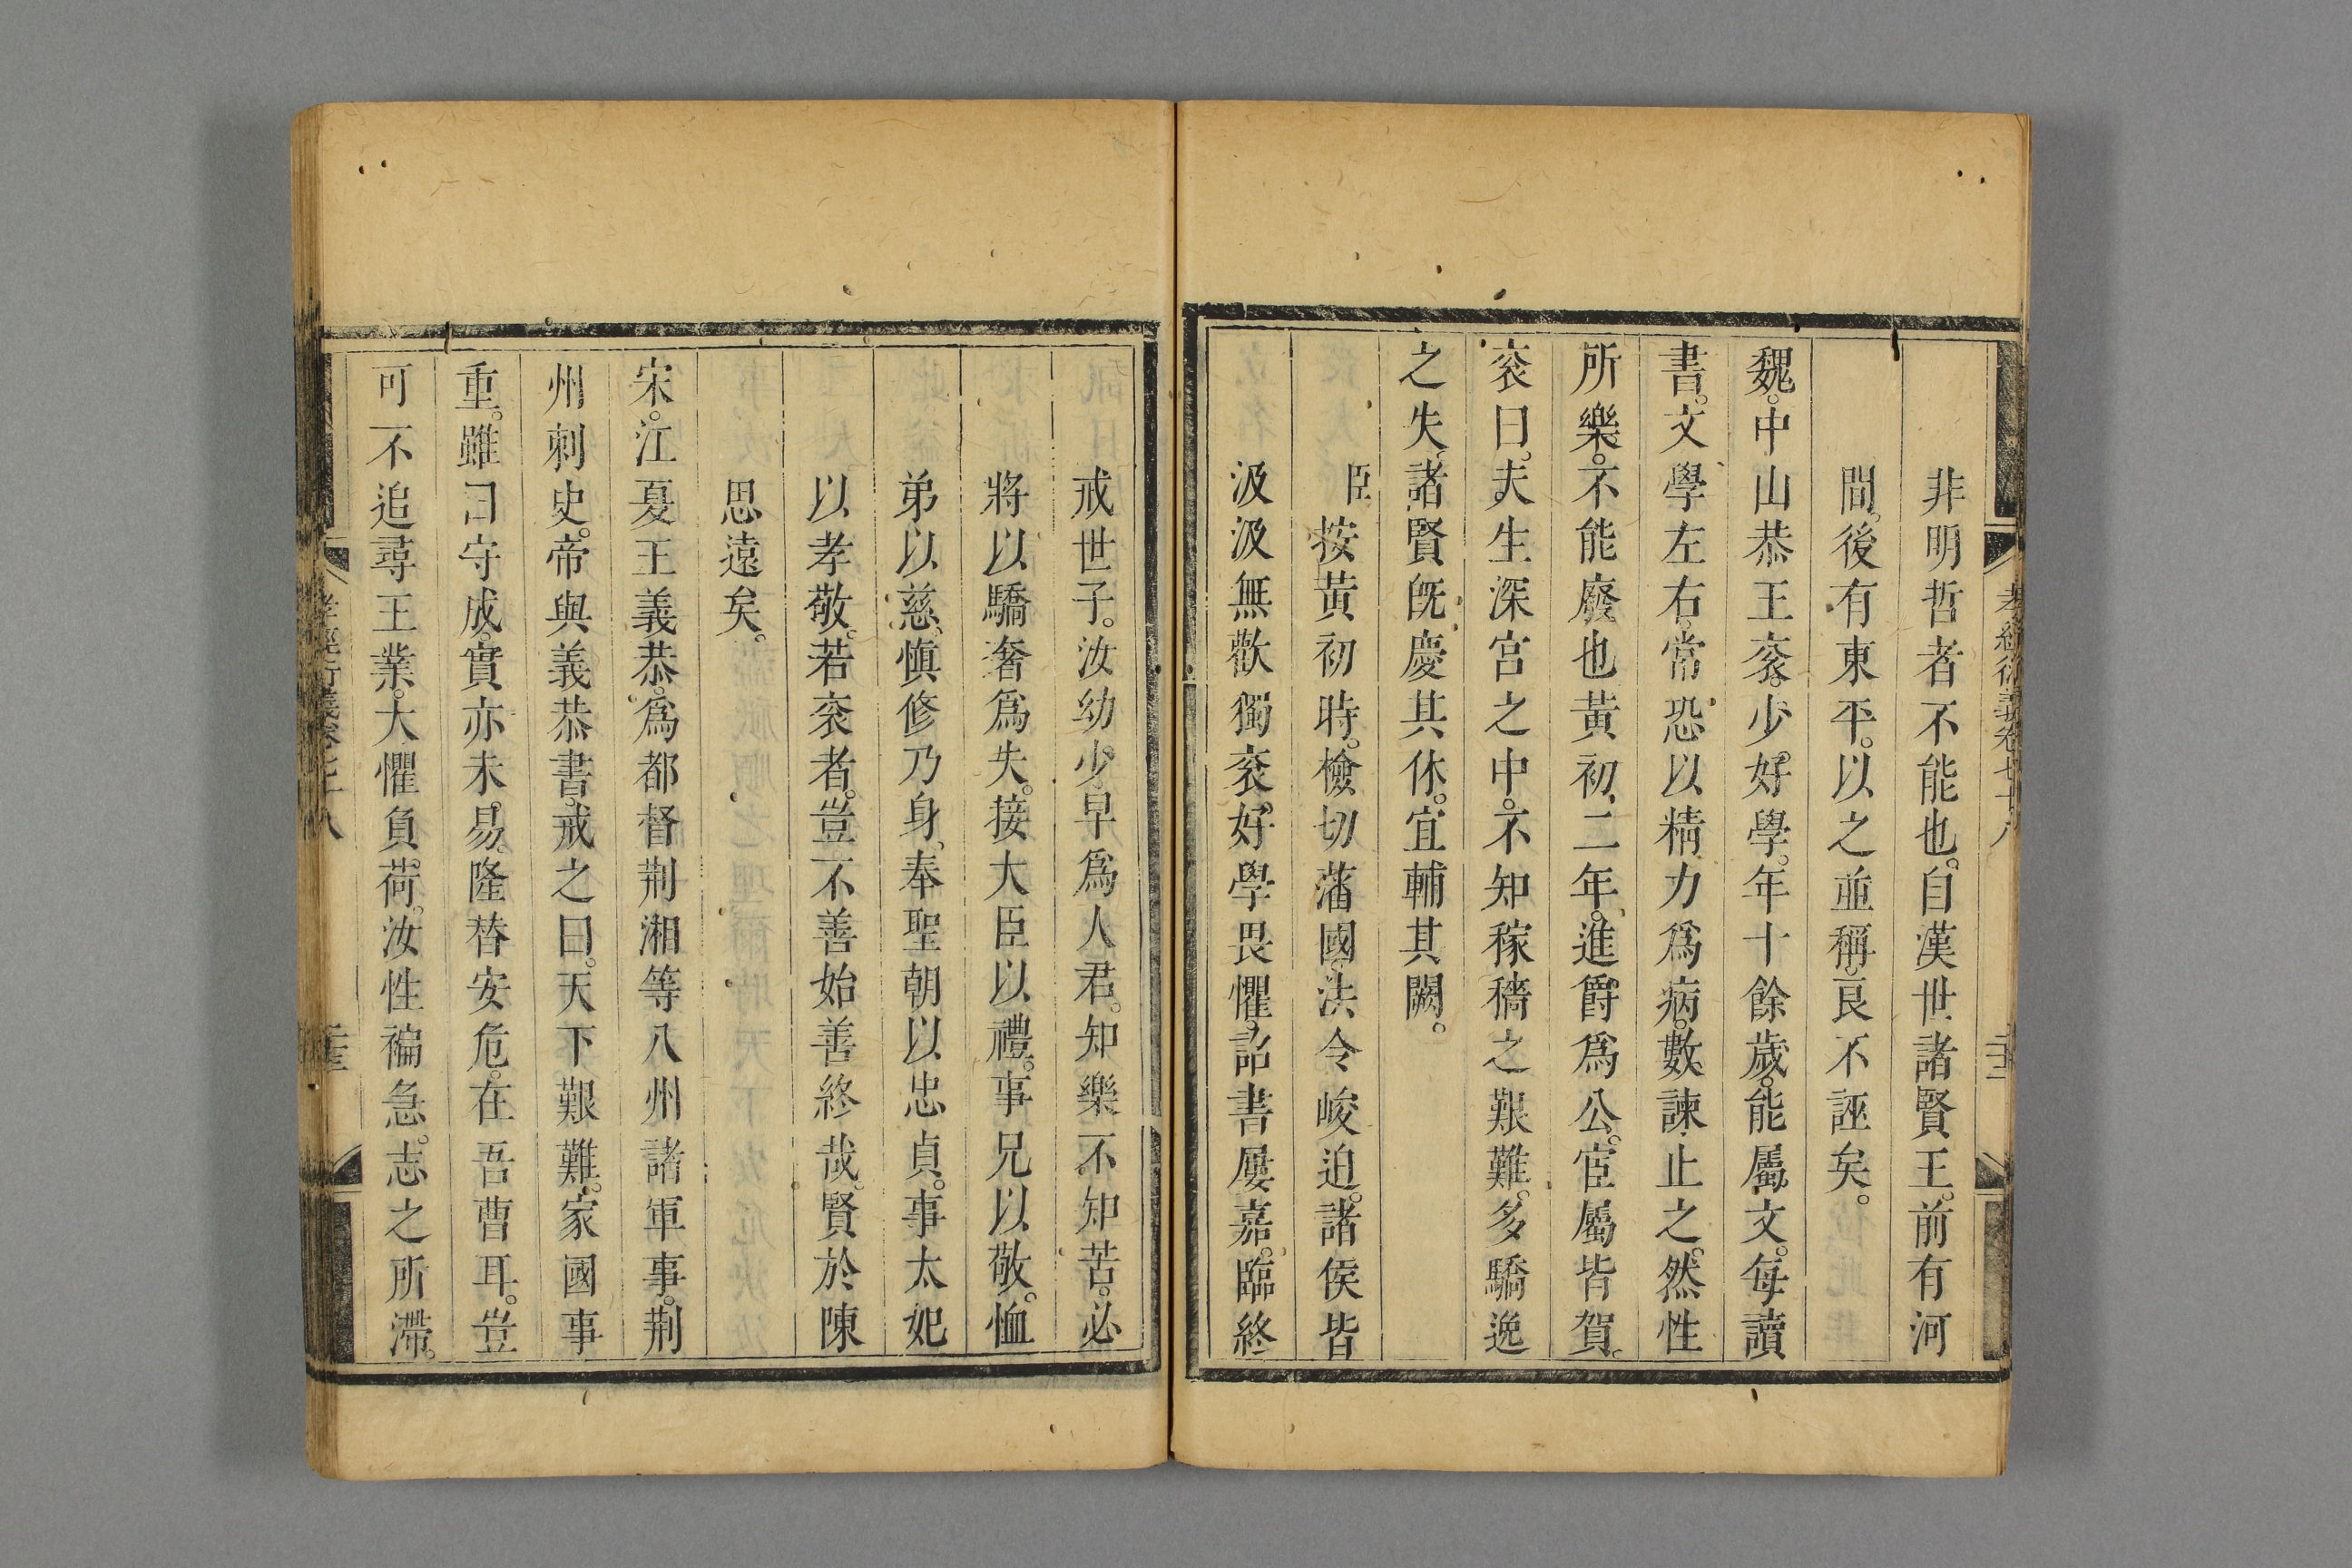 孝經衍義卷七十八
非明哲者不能也。自漢世諸賢王。前有河
間。後有東平。以之並稱。良不誣矣。
魏。中山恭王袞。少好學。年十餘歲。能屬文。每讀
書。文學左右。常恐以精力爲病。數諫止之。然性
所樂。不能廢也黃初二年。進爵爲公。官屬皆賀。
袞曰。夫生深宫之中。不知稼穡之艱難。多驕逸
之失。諸賢旣慶其休。宜輔其闕。
臣按黃初時。檢切藩國。法令峻迫。諸侯皆
汲汲無歡獨袞。好學畏懼。詔書屢嘉。臨終
戒世子。汝幼少早爲人君。知樂不知苦。必
將以驕奢爲失。接大臣以禮。事兄以敬。恤
弟以慈。愼修乃身。奉聖朝以忠貞。事太妃
以孝敬。若袞者。豈不善始善終哉。賢於陳
思遠矣。
宋。江夏王義恭。爲都督荆湘等八州諸軍事。荆
州刺史。帝與義恭書。戒之曰。天下艱難。家國事
重。雖曰守成。實亦未易。隆替安危。在吾曹耳。豈
可不追尋王業。大懼負荷。汝性褊急。志之所滯。
孝經衍義卷七十八